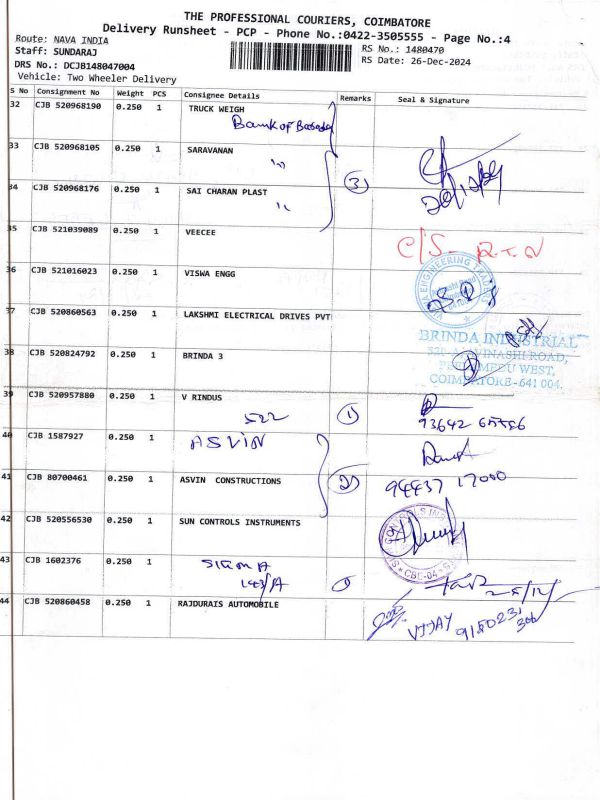 THE PROFESSIONAL COURIERS, COIMBATORE
Delivery Runsheet - PCP - Phone No.:0422-3505555 - Page No.:4
Route: NAVA INDIA
RS No.: 1480470
Staff: SUNDARAJ
RS Date: 26-Dec-2024
DRS No.: DCJB148047004
Vehicle: Two Wheeler Delivery
S No Consignment No Weight PCS Consignee Details Remarks Seal & Signature
32 CJB 520968190 0.250 1 TRUCK WEIGH
Bank of Baroda
33 CJB 520968105 0.250 1 SARAVANAN
34 CJB 520968176 0.250 1 SAI CHARAN PLAST 3
35 CJB 521039089 0.250 1 VEECEE C/S R.T.N
36 CJB 521016023 0.250 1 VISWA ENGG
37 CJB 520860563 0.250 1 LAKSHMI ELECTRICAL DRIVES PVT
BRINDA INDUSTRIAL
38 CJB 520824792 0.250 1 BRINDA 3
AVINASHI ROAD,
WEST,
COIMBATORE-641 004.
39 CJB 520957880 0.250 1 V RINDUS
522 1 93642 65556
40 CJB 1587927 0.250 1 ASVIN
41 CJB 80700461 0.250 1 ASVIN CONSTRUCTIONS 2 94437 17000
42 CJB 520556530 0.250 1 SUN CONTROLS INSTRUMENTS
CBE-04
43 CJB 1602376 0.250 1 SIGMA
143/A
44 CJB 520860458 0.250 1 RAJDURAIS AUTOMOBILE
VIJAY 9150231
306